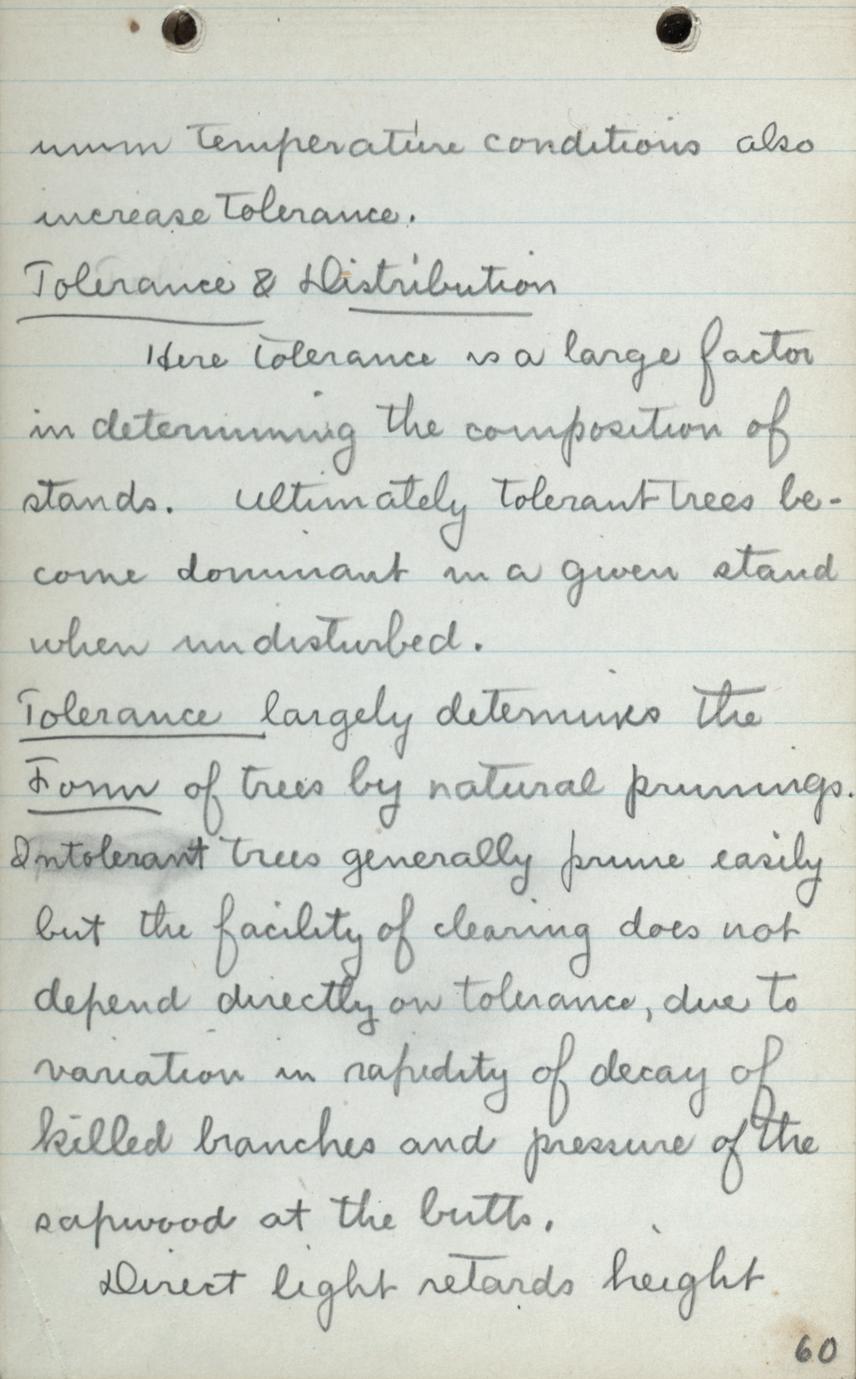 umm temperature conditions also
increase tolerance.
Tolerance & Distribution
Here tolerance is a large factor
in determining the composition of
stands. Ultimately tolerant trees be-
come dominant in a given stand
when undisturbed.
Tolerance largely determines the
Form of trees by natural prunings.
Intolerant trees generally prune easily
but the facility of clearing does not
depend directly on tolerance, due to
variation in rapidity of decay of
killed branches and pressure of the
sapwood at the butts.
Direct light retards height
60